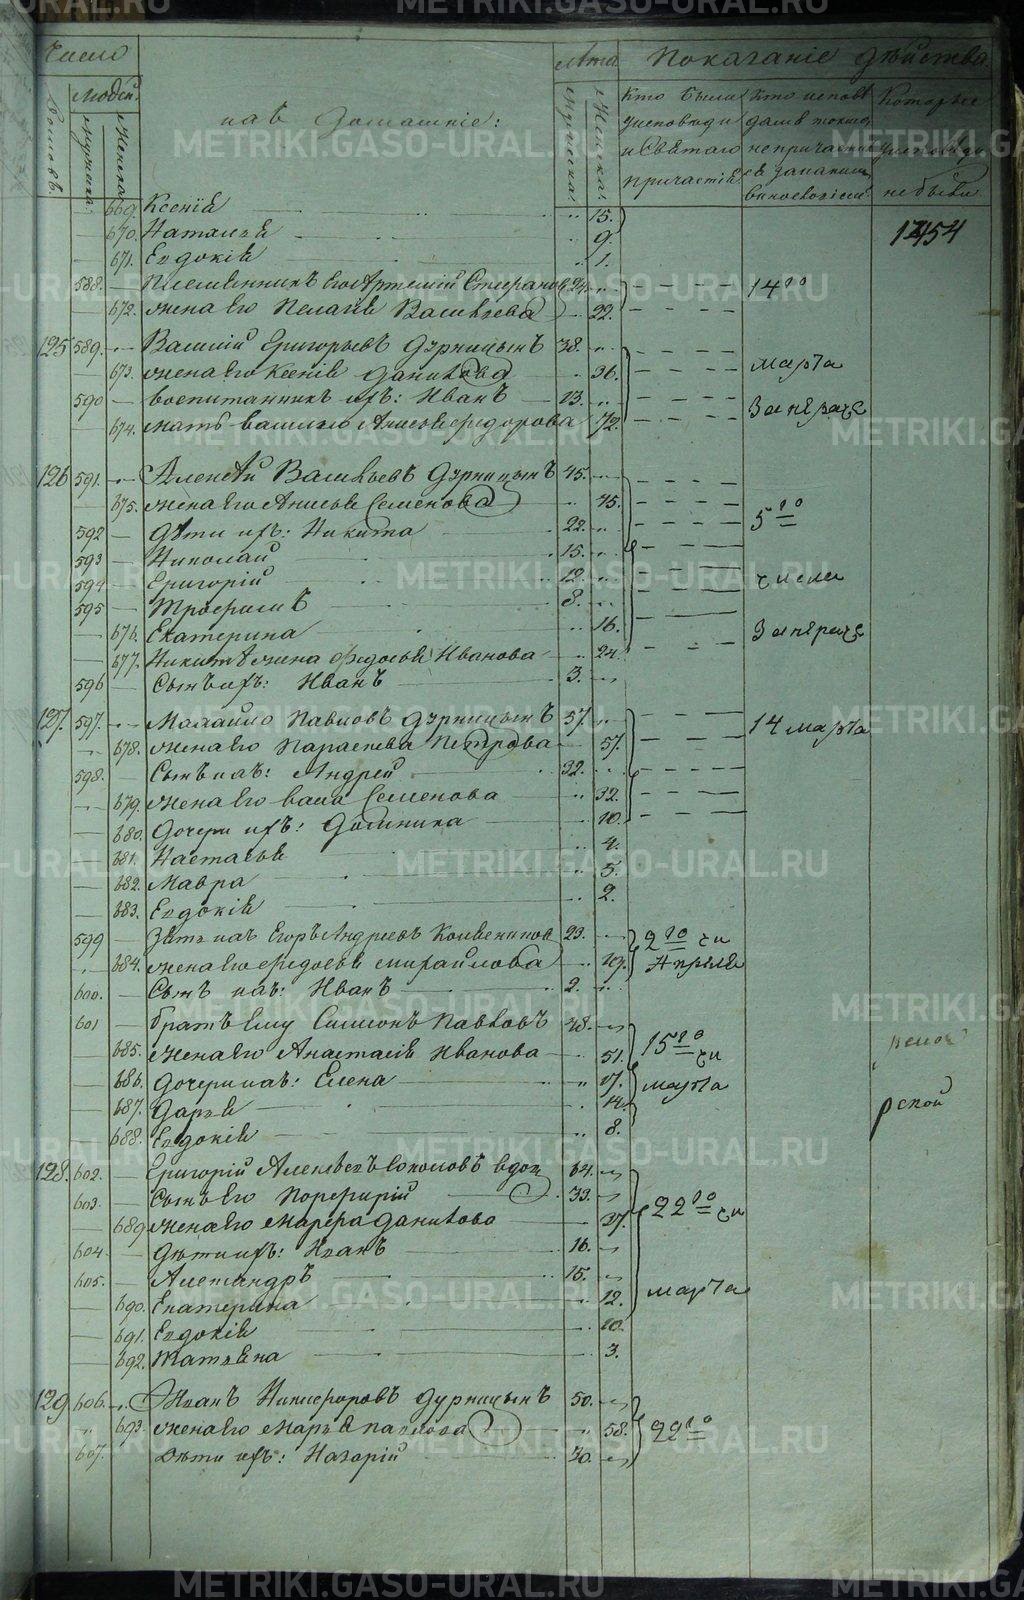 METRIKI.GASO-URAL.RU
Число
Лѣта
Показаніе дѣйства
Домовъ.
Людей.
Мужска.
Женска.
и ихъ Домашніе:
Мужска.
Женска.
Кто были у исповѣди и Святаго причастія
Кто исповѣдались токмо, а не причастились
Которые у исповѣди не были
669. Ксенія 15.
670. Наталья 9.
671. Евдокія 1.
1454
588. Племянникъ Его Артемій Стефановъ 24. 14го
672. жена Его Пелагія Васильева 22.
125 589. Василій Григорьевъ Дурницынъ 38.
673. жена Его Ксенія Данилова 36. марта
590 Воспитанникъ ихъ: Иванъ 13.
674. мать Василья Анисья Федорова 72.
126 591. Алексѣй Васильевъ Дурницынъ 45.
675. жена Его Анисья Семенова 45.
592 Дѣти ихъ: Никита 22. 5го
593 Николай 15.
594 Григорій 12. числа
595 Трофимъ 8.
676. Екатерина 16.
677. Никиты жена Федосья Иванова 24.
596 Сынъ ихъ: Иванъ 3.
127. 597. Павловъ Дурницынъ 57. 14 марта
678. жена Его Параскева Петрова 57.
598. Сынъ ихъ: Андрей 32.
679. жена Его Семенова 32.
680. Дочери ихъ: Домника 10.
681. Настасья 4.
682. Мавра 5.
683. Евдокія 2.
599 Зять ихъ Егоръ Андреевъ 23. 2го чи
684. жена Его Федосья Михайлова 19. Апрѣля
600. Сынъ ихъ: Иванъ 2.
601 братъ Ему Симеонъ Павловъ 48.
685. жена Его Анастасія Иванова 51. 15го чи
686. Дочери ихъ: Елена 17. марта
687. Дарья 14.
688. Евдокія 8.
рской
128. 602. Григорій Алексѣевъ Соколовъ вдов 64.
603. Сынъ Его Порфирій 33.
689 жена Его Марфа Данилова 37. 22го чи
604 Дѣти ихъ: Иванъ 16.
605. Александръ 15.
690. Екатерина 12. марта
691. Евдокія 10.
692. Татьяна 3.
129 606. Иванъ Никифоровъ Дурницынъ 50.
693. жена Его Марья Павлова 58. 22го
607. Дѣти ихъ: Назарій 30.